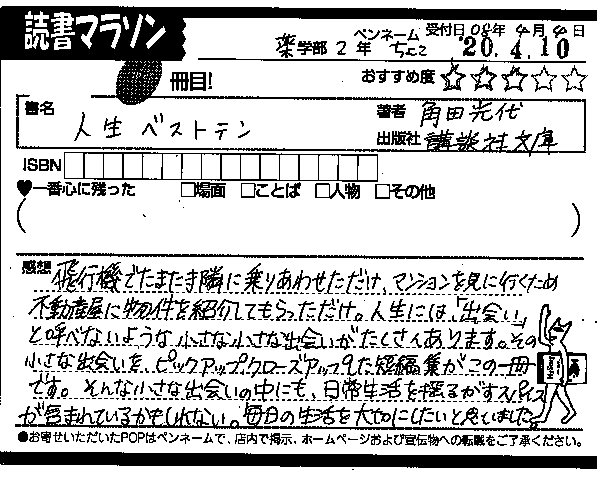 読書マラソン
薬学部 2 年 ペンネーム ちょこ 受付日 08年 4月 4日
'20.4.10
冊目! おすすめ度 ☆☆☆☆☆
書名 人生ベストテン
著者 角田光代
出版社 講談社文庫
ISBN
♥一番心に残った □場面 □ことば □人物 □その他
感想 飛行機でたまたま隣に乗りあわせただけ、マンションを見に行くため
不動産屋に物件を紹介してもらっただけ。人生には、「出会い」
と呼べないような小さな小さな出会いがたくさんあります。その
小さな出会いを、ピックアップ、クローズアップした短編集がこの一冊
です。そんな小さな出会いの中にも、日常生活を揺るがすスパイス
が含まれているかもしれない。毎日の生活を大切にしたいと思いました。
●お寄せいただいたPOPはペンネームで、店内で掲示、ホームページおよび宣伝物への転載をご了承ください。